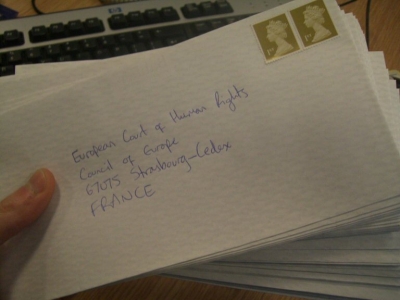 European Court of Human Rights
Council of Europe
67075 Strasbourg-Cedex
FRANCE